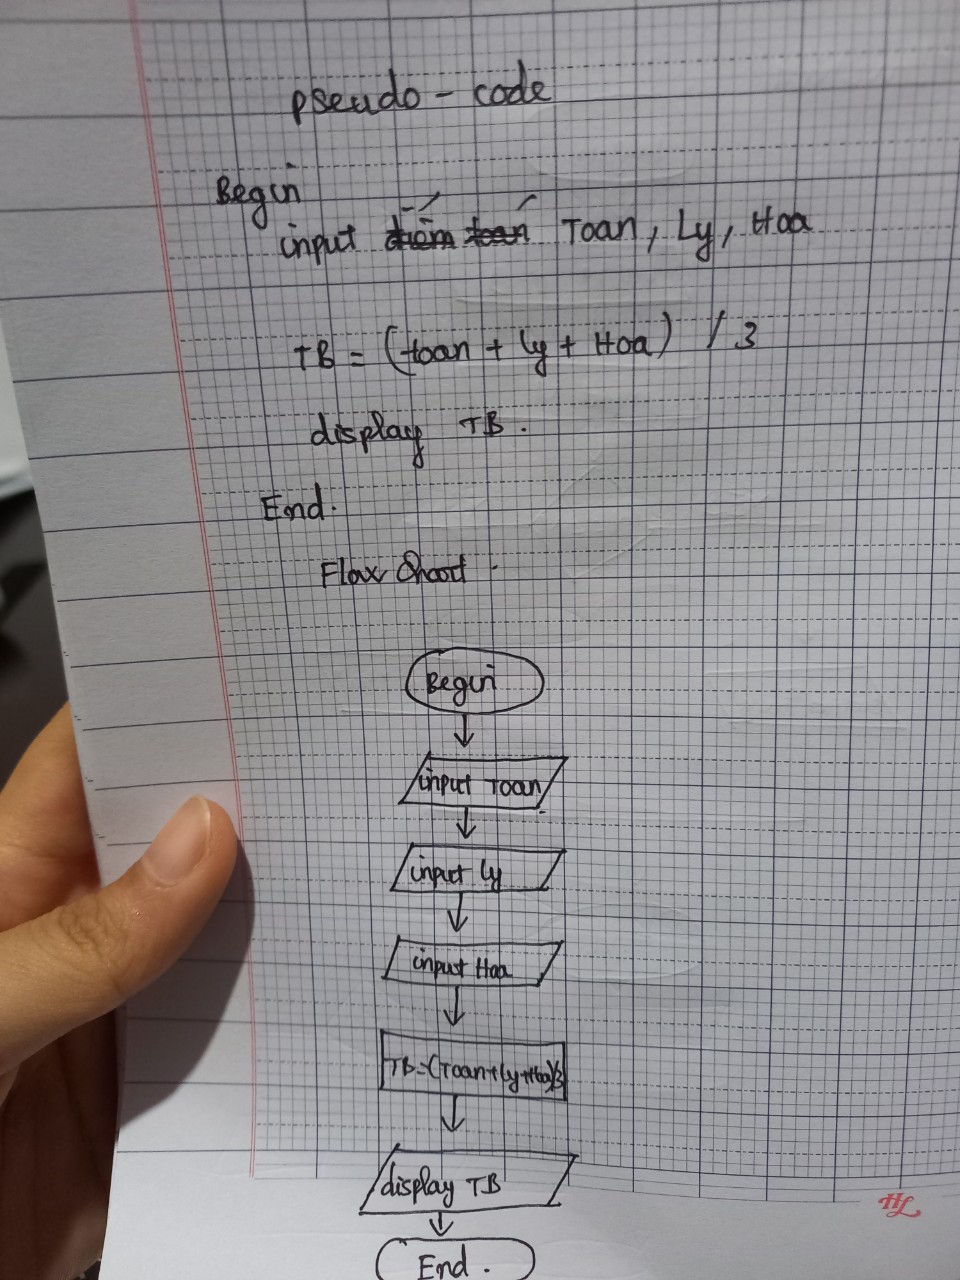 pseudo - code
Begin
input điểm toán Toan, Ly, Hoa
TB = (toan + ly + Hoa) / 3
display TB.
End.
Flow Chart.
Begin
input Toan
input ly
input Hoa
TB=(Toan+ly+Hoa)/3
display TB
End.
HL